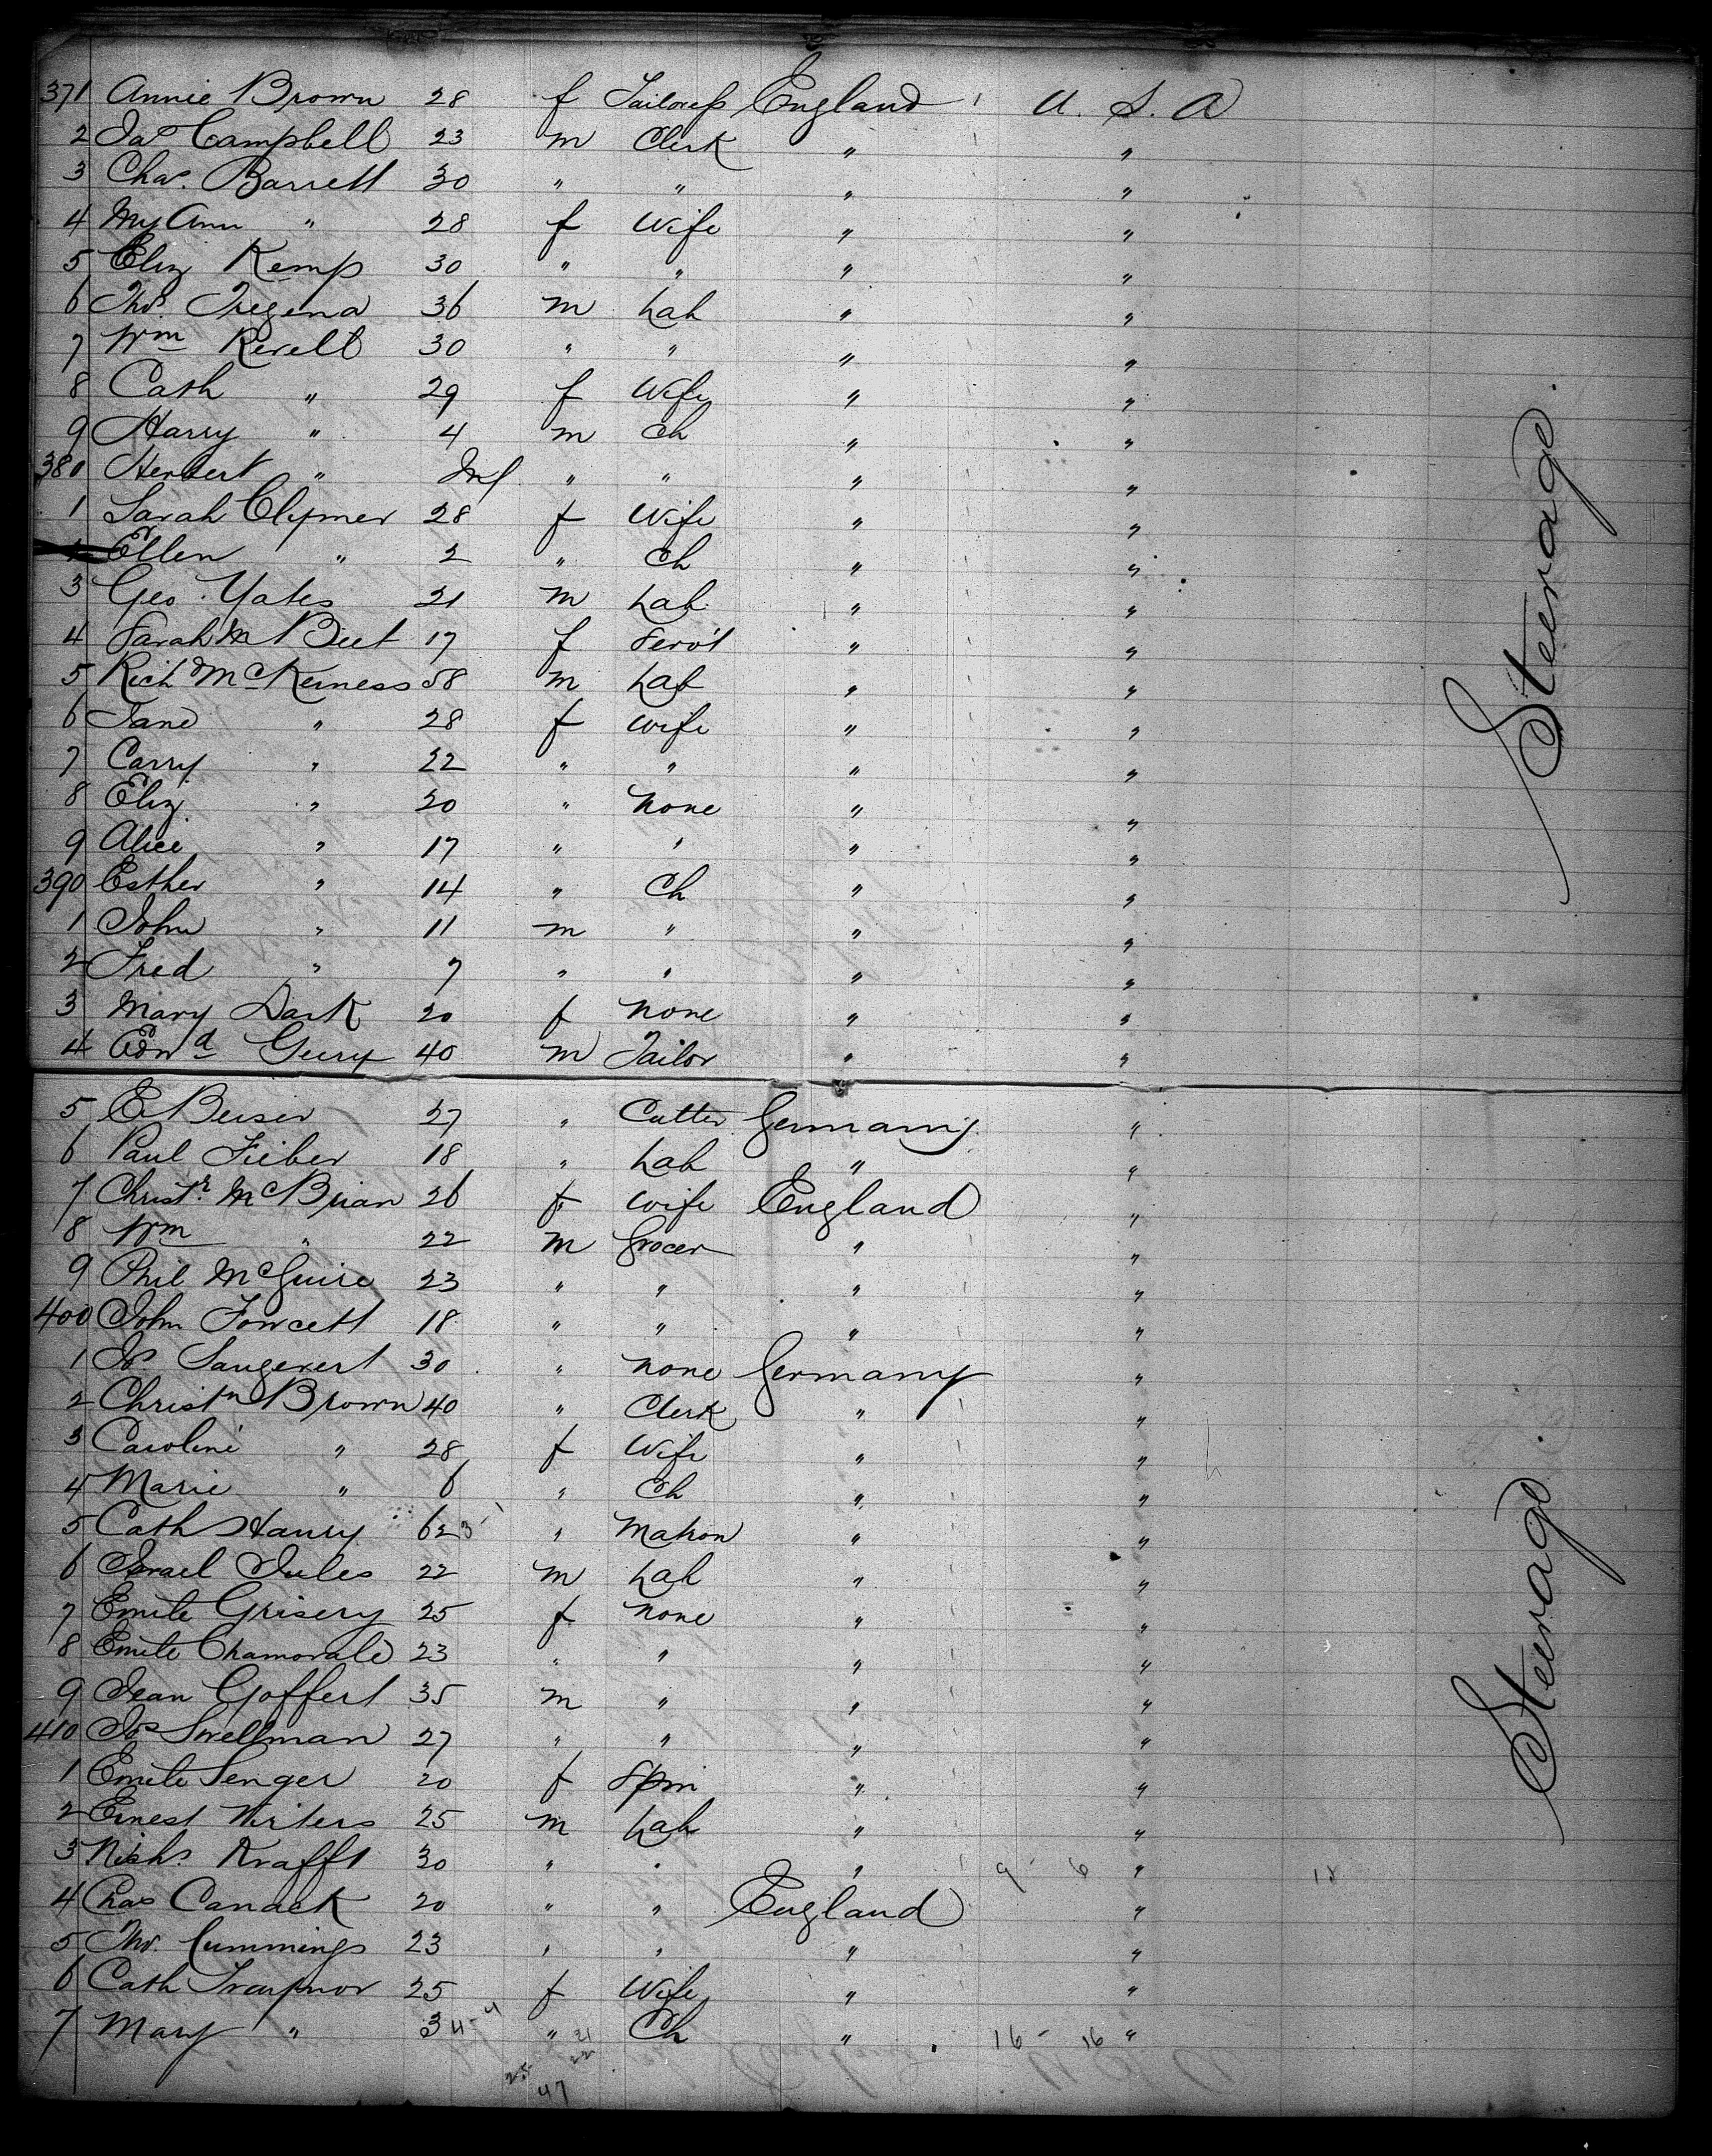 371 Annie Brown 28 f Tailoress England U. S. A
2 Jas Campbell 23 m Clerk " "
3 Chas. Barrett 30 " " " "
4 My Ann " 28 f Wife " "
5 Eliz Kemp 30 " " " "
6 Thos. Tregena 36 m Lab " "
7 Wm Revell 30 " " " "
8 Cath " 29 f Wife " "
9 Harry " 4 m Ch " "
380 Herbert " Inf " " " "
1 Sarah Clymer 28 f Wife " "
Ellen " 2 " Ch " "
3 Geo. Yates 21 m Lab " "
4 Sarah M Beet 17 f Servt " "
5 Richd McKerness 58 m Lab " "
6 Jane " 28 f Wife " "
7 Carry " 22 " " " "
8 Eliz " 20 " None " "
9 Alice " 17 " " " "
390 Esther " 14 " Ch " "
1 John " 11 m " " "
2 Fred " 7 " " " "
3 Mary Dark 20 f None " "
4 Edwd Geery 40 m Tailor " "
Steerage.
5 E Beiser 27 " Cutter Germany "
6 Paul Fieber 18 " Lab " "
7 Christr. McBrian 26 f Wife England "
8 Wm " 22 m Grocer " "
9 Phil McGuire 23 " " " "
400 John Fowcett 18 " " " "
1 Js. Saugevert 30 " None Germany "
2 Christn Brown 40 " Clerk " "
3 Caroline " 28 f Wife " "
4 Marie " 6 " Ch " "
5 Cath Haury 62 " Matron " "
6 Israel Jules 22 m Lab " "
7 Emile Grisery 25 f None " "
8 Emile Chamorale 23 " " " "
9 Jean Goffert 35 m " " "
410 Js Swellman 27 " " " "
1 Emile Senger 20 f Spin " "
2 Ernest Wirters 25 m Lab " "
3 Nichs. Krafft 30 " " " 9 6 " 18
4 Chas Canack 20 " " England "
5 Thos. Cummings 23 " " " "
6 Cath Traynor 25 f Wife " "
7 Mary " 3 " Ch " 16 - 16 "
Steerage.
25 22
47